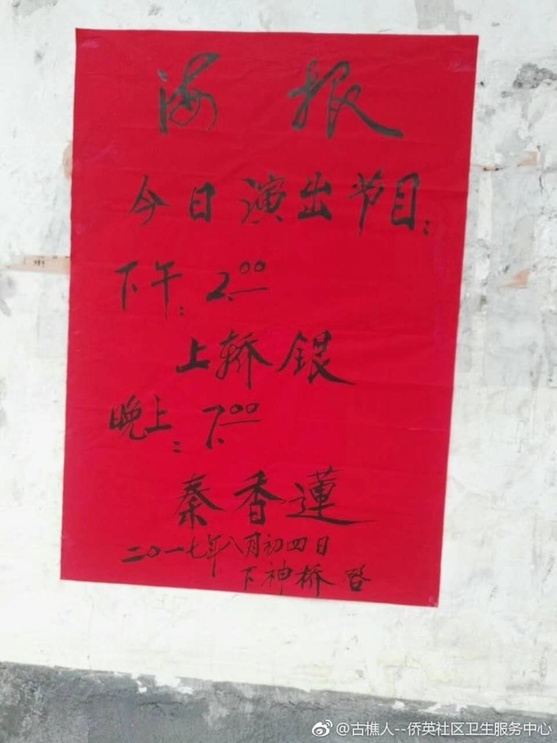 海报
今日演出节目:
下午: 2.00
上轿银
晚上: 7.00
秦香蓮
二〇一七年八月初四日
下神桥 启
@古樵人--侨英社区卫生服务中心